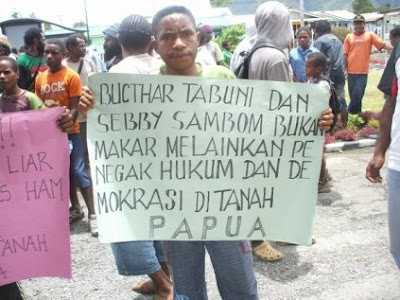 BUCTHAR TABUNI DAN
SEBBY SAMBOM BUKAN
MAKAR MELAINKAN PE
NEGAK HUKUM DAN DE
MOKRASI DITANAH
PAPUA
!!
LIAR
S HAM
TANAH
ROCK